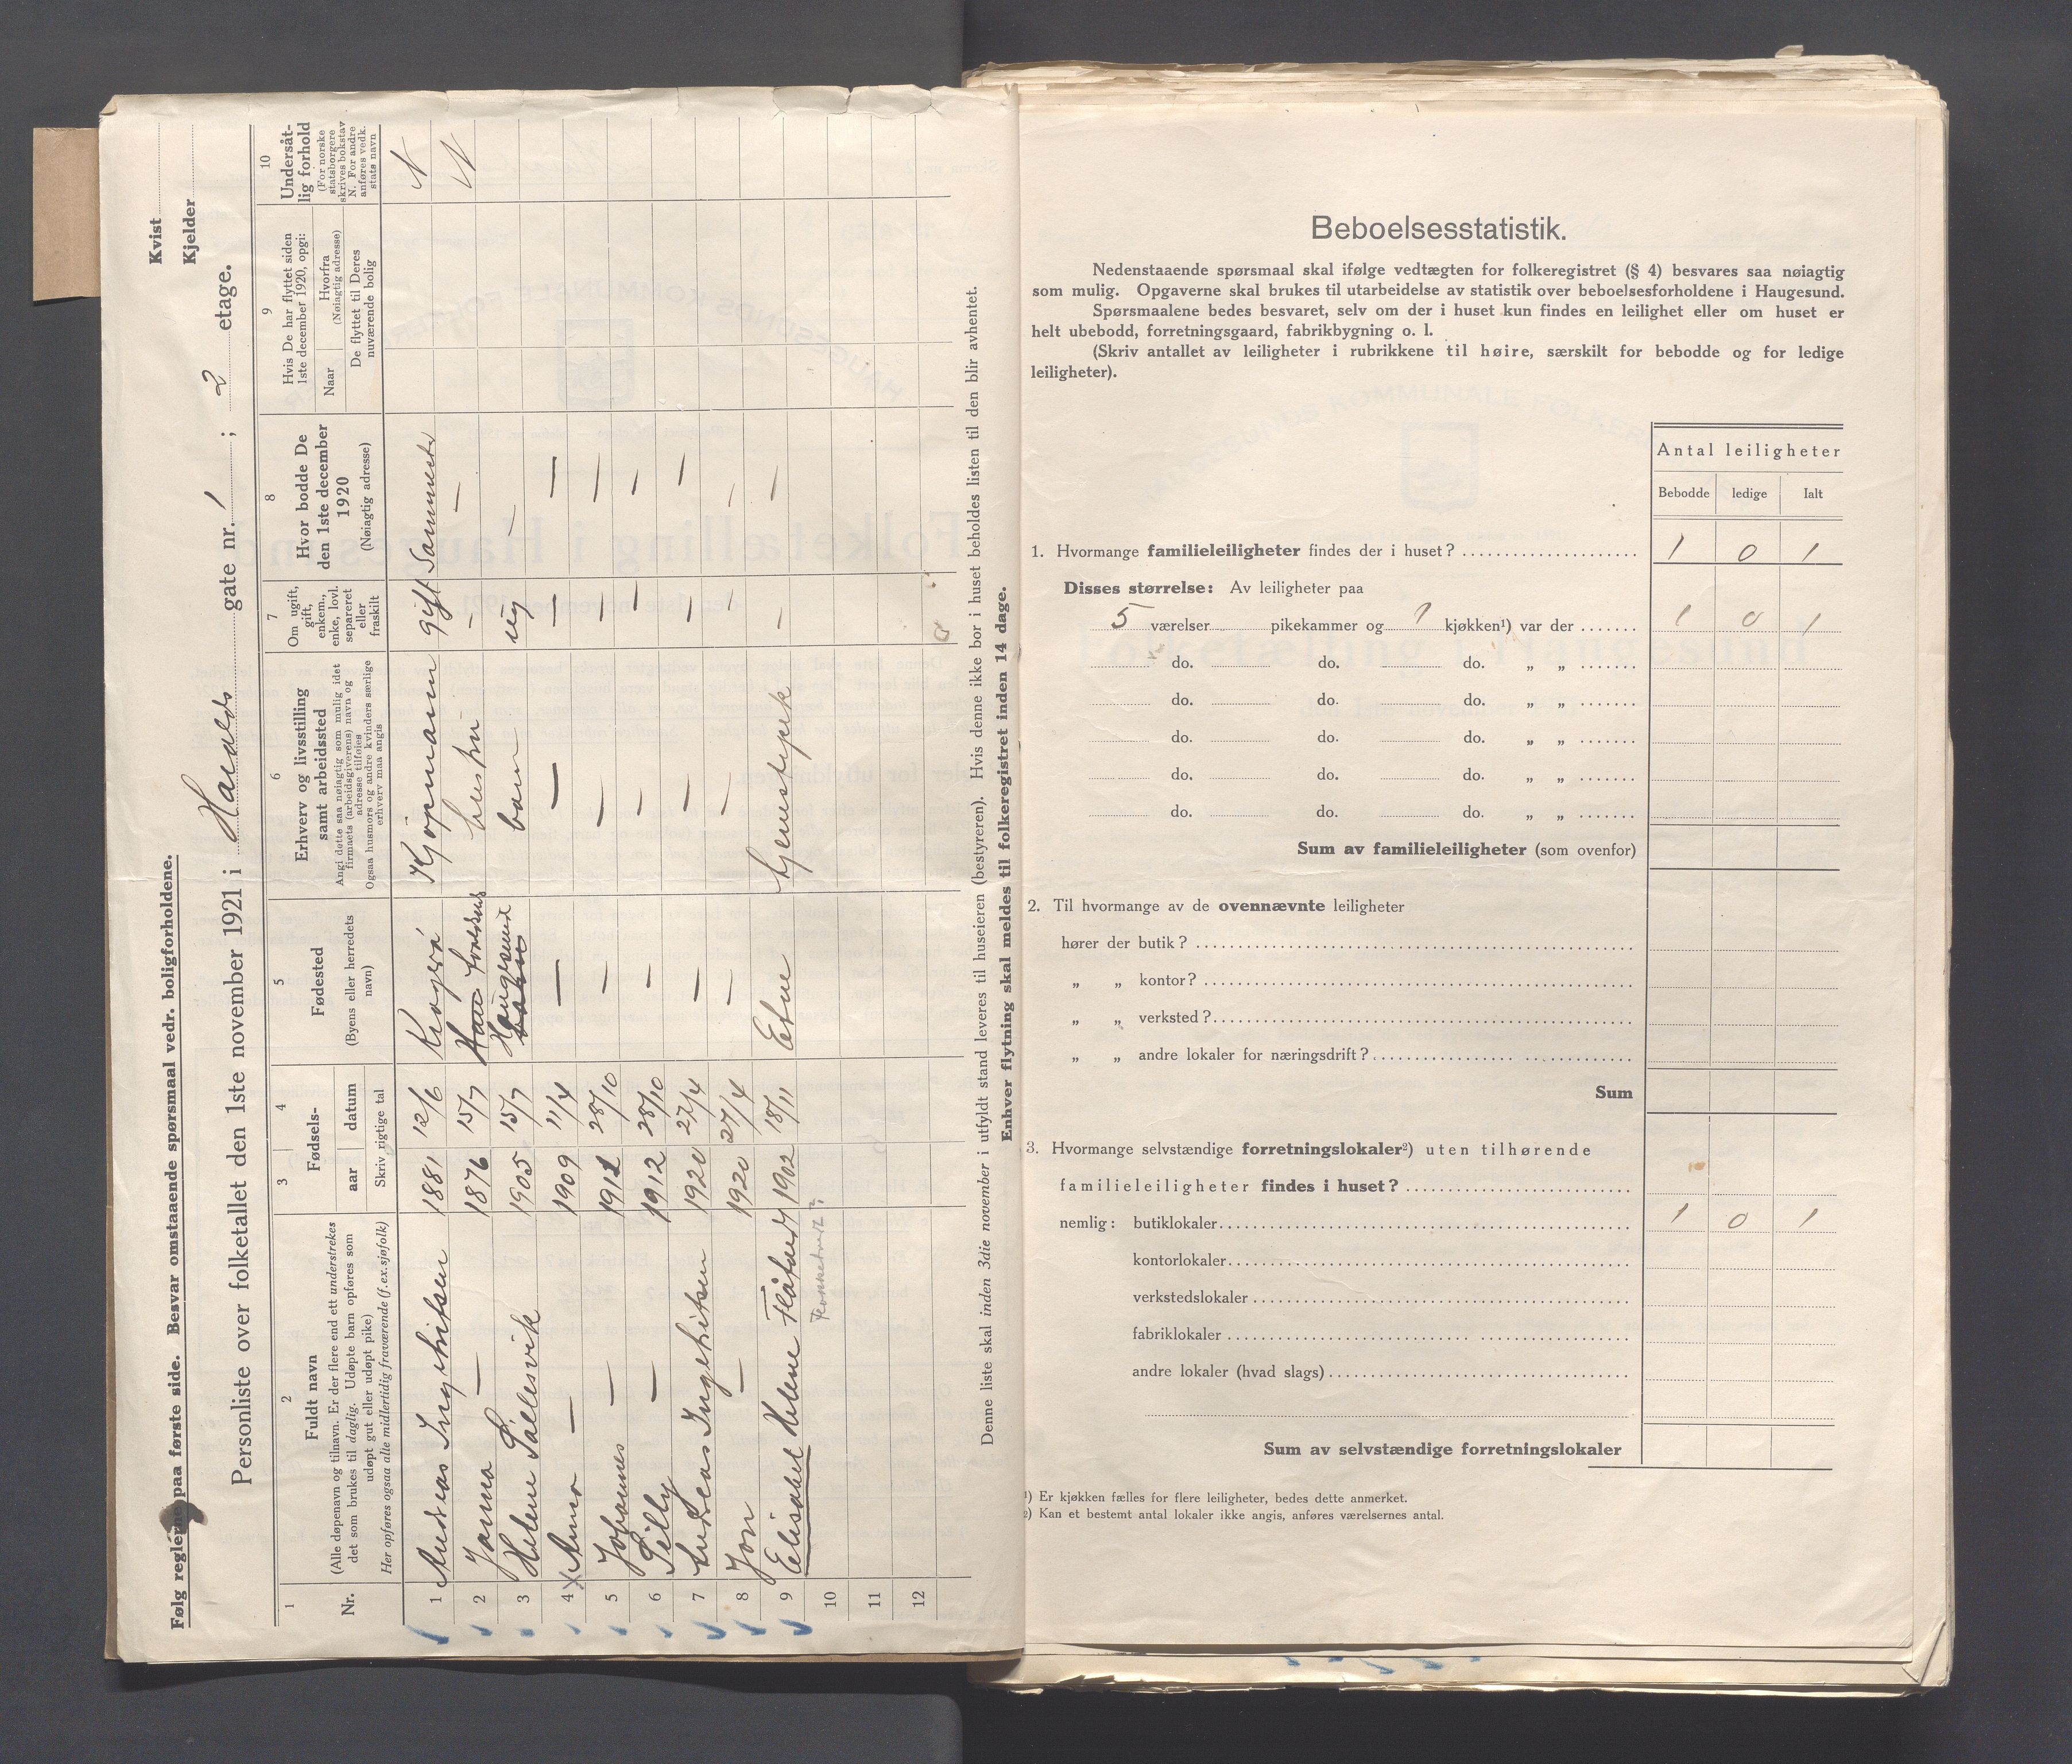 Følg reglerne paa første side. Besvar omstaaende spørsmaal vedr. boligforholdene.
Kvist
Kjelder
Personliste over folketallet den 1ste november 1921 i Haralds gate nr. 1 ; 2 etage.
1 2 3 4 5 6 7 8 9 10
Nr.
Fuldt navn
(Alle døpenavn og tilnavn. Er der flere end ett understrekes
det som brukes til daglig. Udøpte barn opføres som
udøpt gut eller udøpt pike)
Her opføres ogsaa alle midlertidig fraværende (f. ex. sjøfolk)
Fødsels-
aar datum
Skriv rigtige tal
Fødested
(Byens eller herredets
navn)
Erhverv og livsstilling
samt arbeidssted
Angi dette saa nøiagtig som mulig idet
firmaets (arbeidsgiverens) navn og
adresse tilføies
Ogsaa husmors og andre kvinders særlige
erhverv maa angis
Om ugift,
gift,
enkem.,
enke, lovl.
separeret
eller
fraskilt
Hvor bodde De
den 1ste december
1920
(Nøiagtig adresse)
Hvis De har flyttet siden
1ste december 1920, opgi:
Naar
Hvorfra
(Nøiagtig adresse)
De flyttet til Deres
nuværende bolig
Undersåt-
lig forhold
(For norske
statsborgere
skrives bokstav
N. For andre
anføres vedk.
stats navn
1 Andreas Ingebritsen 1881 12/6 Kragerø Kjøpmann gift Sammested N
2 Janna — 1876 15/7 hustru — — N
3 Helene Sällesvik 1905 15/7 Haugesund barn ug —
4 Anna — 1909 11/4 — — — —
5 Johannes — 1912 28/10 — — — —
6 Tilly — 1912 28/10 — — — —
7 Andreas Ingebritsen 1920 27/4 — — — —
8 Jon — 1920 27/4 — — — —
9 Elisabet Helene 1902 18/11 Etne tjenestepik — —
10
11
12
Denne liste skal inden 3die november i utfyldt stand leveres til huseieren (bestyreren). Hvis denne ikke bor i huset beholdes listen til den blir avhentet.
Enhver flytning skal meldes til folkeregistret inden 14 dage.
Beboelsesstatistik.
Nedenstaaende spørsmaal skal ifølge vedtægten for folkeregistret (§ 4) besvares saa nøiagtig
som mulig. Opgaverne skal brukes til utarbeidelse av statistik over beboelsesforholdene i Haugesund.
Spørsmaalene bedes besvaret, selv om der i huset kun findes en leilighet eller om huset er
helt ubebodd, forretningsgaard, fabrikbygning o. l.
(Skriv antallet av leiligheter i rubrikkene til høire, særskilt for bebodde og for ledige
leiligheter).
Antal leiligheter
Bebodde ledige Ialt
1. Hvormange familieleiligheter findes der i huset? 1 0 1
Disses størrelse: Av leiligheter paa
5 værelser pikekammer og 1 kjøkken¹) var der 1 0 1
do. do. do. „ „
do. do. do. „ „
do. do. do. „ „
do. do. do. „ „
do. do. do. „ „
Sum av familieleiligheter (som ovenfor)
2. Til hvormange av de ovennævnte leiligheter
hører der butik?
„ „ kontor?
„ „ verksted?
„ „ andre lokaler for næringsdrift?
Sum
3. Hvormange selvstændige forretningslokaler²) uten tilhørende
familieleiligheter findes i huset?
nemlig: butiklokaler 1 0 1
kontorlokaler
verkstedslokaler
fabriklokaler
andre lokaler (hvad slags)
Sum av selvstændige forretningslokaler
¹) Er kjøkken fælles for flere leiligheter, bedes dette anmerket.
²) Kan et bestemt antal lokaler ikke angis, anføres værelsernes antal.